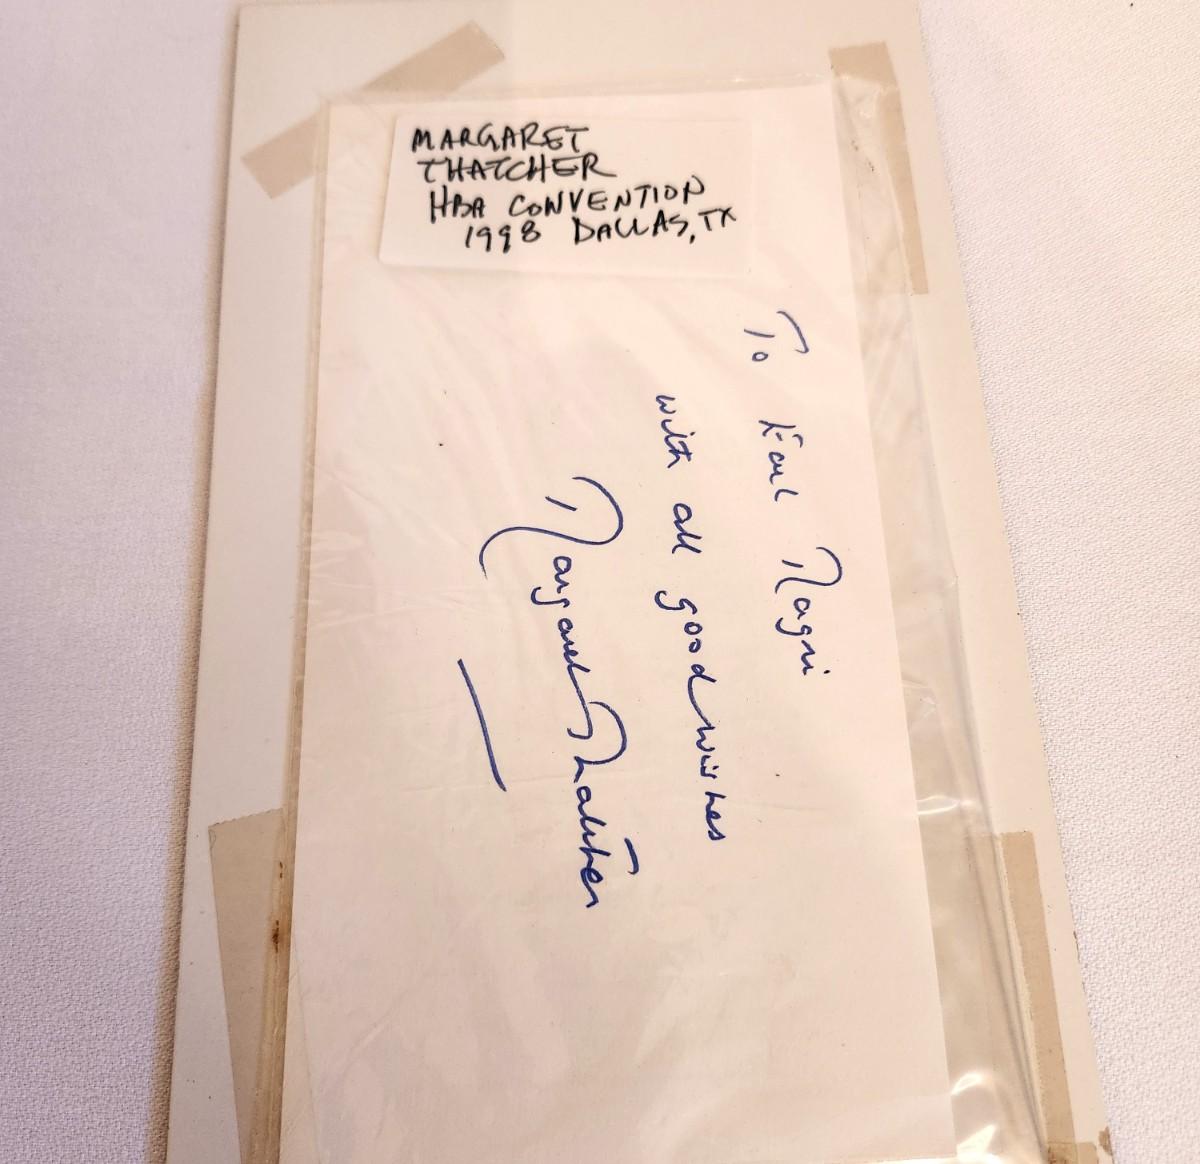 MARGARET
THATCHER
HBA CONVENTION
1998 DALLAS, TX
To Earl Magri
with all good wishes
Margaret Thatcher